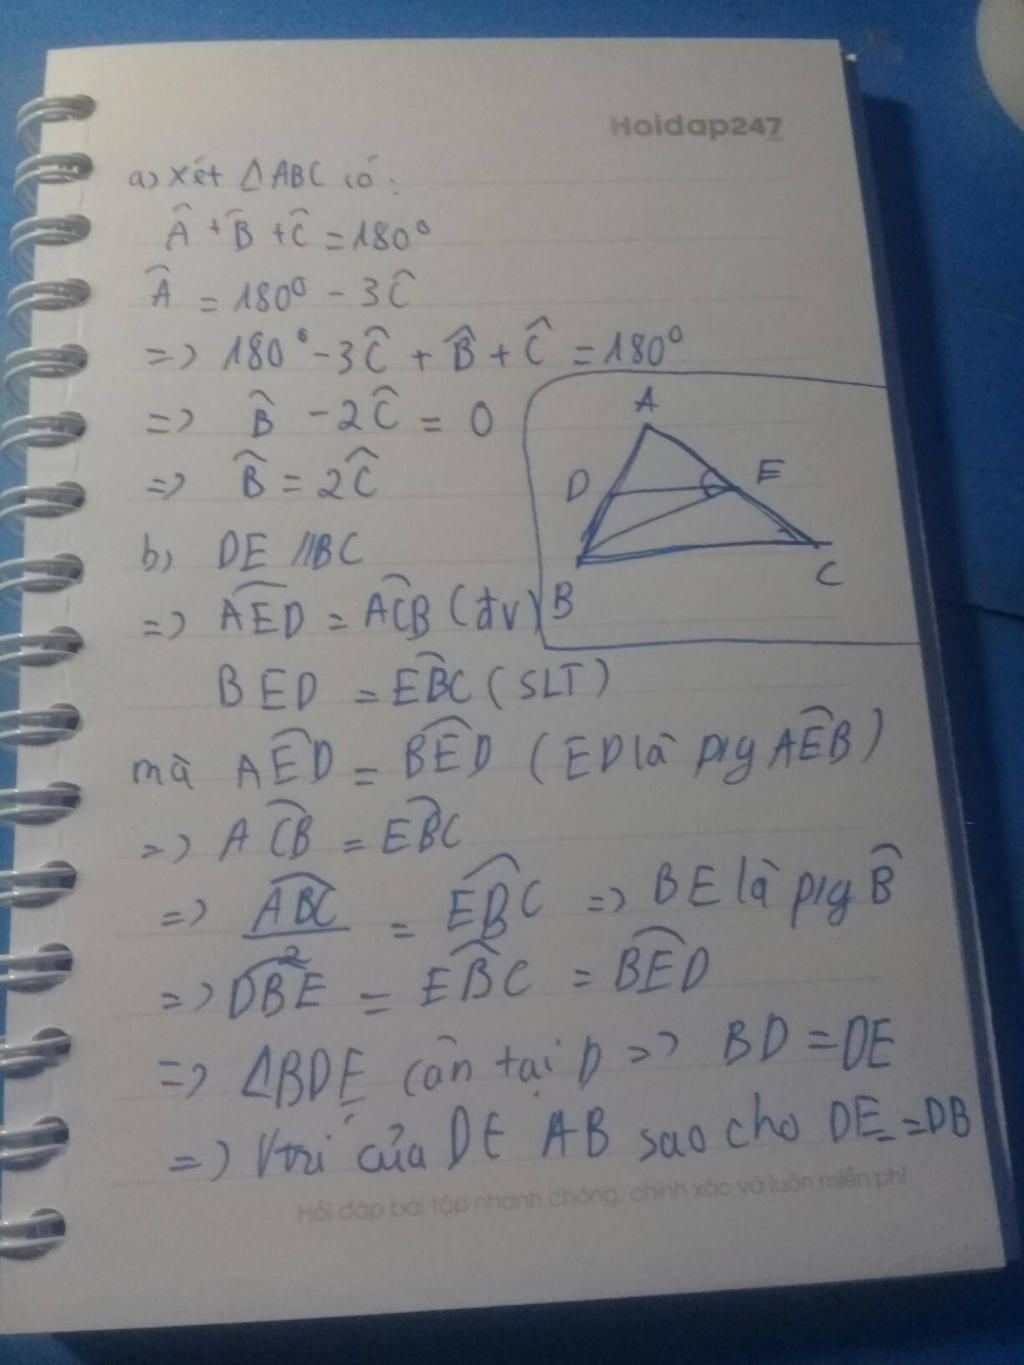 Hoidap247
a) Xét ΔABC có:
Â + B̂ + Ĉ = 180°
Â = 180° - 3Ĉ
=> 180° - 3Ĉ + B̂ + Ĉ = 180°
=> B̂ - 2Ĉ = 0
=> B̂ = 2Ĉ
A
D
E
B
C
b) DE // BC
=> AÊD = AĈB (đv)
BED = EB̂C (SLT)
mà AÊD = BÊD (ED là p/g AÊB)
=> AĈB = EB̂C
=> AB̂C/2 = EB̂C => BE là p/g B̂
=> DB̂E = EB̂C = BÊD
=> ΔBDE cân tại D => BD = DE
=> Vtrí của DE AB sao cho DE = DB
Hỏi đáp bài tập nhanh chóng, chính xác và luôn miễn phí